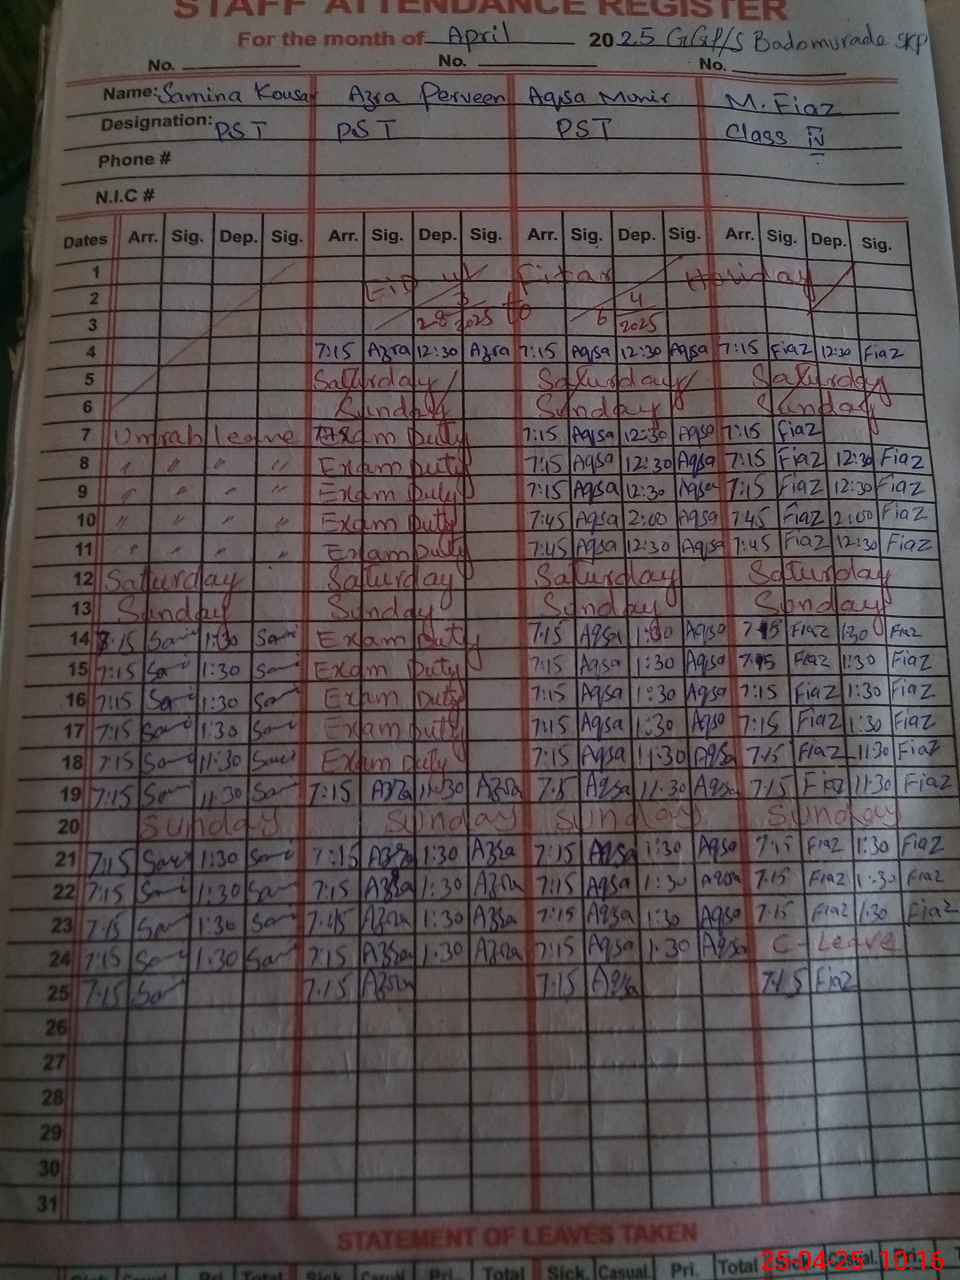 STAFF ATTENDANCE REGISTER
For the month of April 2025 GGP/S Badomurada SKP
No. No. No.
Name: Samina Kousar Azra Perveen Aqsa Munir M. Fiaz
Designation: PST PST PST Class IV
Phone #
N.I.C #
Dates Arr. Sig. Dep. Sig. Arr. Sig. Dep. Sig. Arr. Sig. Dep. Sig. Arr. Sig. Dep. Sig.
1 Eid ul Fitar Holiday
2 28/3/2025 to 6/4/2025
3
4 7:15 Azra 12:30 Azra 7:15 Aqsa 12:30 Aqsa 7:15 Fiaz 12:30 Fiaz
5 Satturday Satturday Satturday
6 Sunday Sunday Sunday
7 Umrah leave Exam Duty 7:15 Aqsa 12:30 Aqsa 7:15 Fiaz
8 " " " " Exam Duty 7:15 Aqsa 12:30 Aqsa 7:15 Fiaz 12:30 Fiaz
9 " " " " Exam Duty 7:15 Aqsa 12:30 Aqsa 7:15 Fiaz 12:30 Fiaz
10 " " " " Exam Duty 7:45 Aqsa 2:00 Aqsa 7:45 Fiaz 2:00 Fiaz
11 " " " " Exam Duty 7:45 Aqsa 12:30 Aqsa 7:45 Fiaz 12:30 Fiaz
12 Satturday Satturday Satturday Satturday
13 Sunday Sunday Sunday Sunday
14 7:15 Sami 1:30 Sami Exam Duty 7:15 Aqsa 1:30 Aqsa 7:15 Fiaz 1:30 Fiaz
15 7:15 Sami 1:30 Sami Exam Duty 7:15 Aqsa 1:30 Aqsa 7:15 Fiaz 1:30 Fiaz
16 7:15 Sami 1:30 Sami Exam Duty 7:15 Aqsa 1:30 Aqsa 7:15 Fiaz 1:30 Fiaz
17 7:15 Sami 1:30 Sami Exam Duty 7:15 Aqsa 1:30 Aqsa 7:15 Fiaz 1:30 Fiaz
18 7:15 Sami 11:30 Sami Exam Duty 7:15 Aqsa 11:30 Aqsa 7:15 Fiaz 11:30 Fiaz
19 7:15 Sami 11:30 Sami 7:15 Azra 11:30 Azra 7:15 Aqsa 11:30 Aqsa 7:15 Fiaz 11:30 Fiaz
20 Sunday Sunday Sunday Sunday
21 7:15 Sami 1:30 Sami 7:15 Azra 1:30 Azra 7:15 Aqsa 1:30 Aqsa 7:15 Fiaz 1:30 Fiaz
22 7:15 Sami 1:30 Sami 7:15 Azra 1:30 Azra 7:15 Aqsa 1:30 Aqsa 7:15 Fiaz 1:30 Fiaz
23 7:15 Sami 1:30 Sami 7:15 Azra 1:30 Azra 7:15 Aqsa 1:30 Aqsa 7:15 Fiaz 1:30 Fiaz
24 7:15 Sami 1:30 Sami 7:15 Azra 1:30 Azra 7:15 Aqsa 1:30 Aqsa C-Leave
25 7:15 Sami 7:15 Azra 7:15 Aqsa 7:15 Fiaz
26
27
28
29
30
31
STATEMENT OF LEAVES TAKEN
Total Sick. Casual. Pri. Total Sick. Casual. Pri. Total Sick. Casual. Pri.
25-04-25 10:16